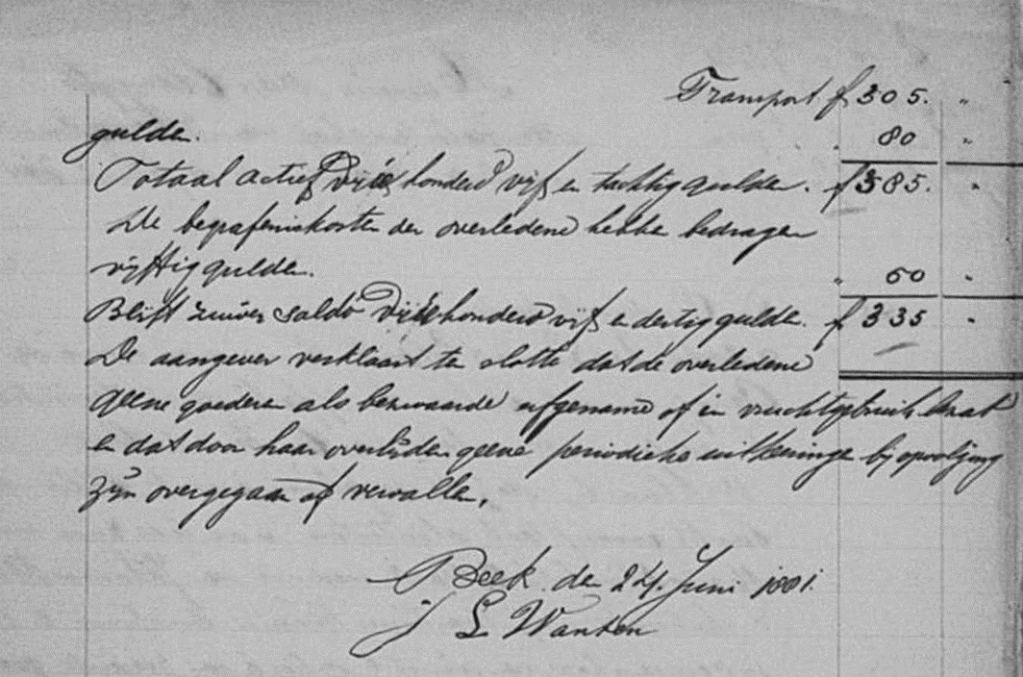 Transport f 305. "
gulde. " 80 "
Totaal actief drie honderd vijf en tachtig gulden. f 385. "
De begrafeniskosten der overledene hebbe bedragen
vijftig gulde. " 50 "
Blijft zuiver saldo drie honderd vijf en dertig gulde. f 335 "
De aangever verklaart ten slotte dat de overledene
geene goederen als bezwaarde erfgename of in vruchtgebruik bezat
en dat door haar overlijden geene periodieke uitkeeringe bij opvolging
zijn overgegaan of vervallen.
Beek den 24 Juni 1881.
J L Wanten